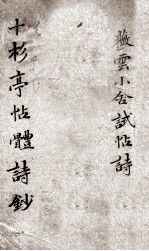 薇雲小舍試帖詩
十杉亭帖體詩鈔